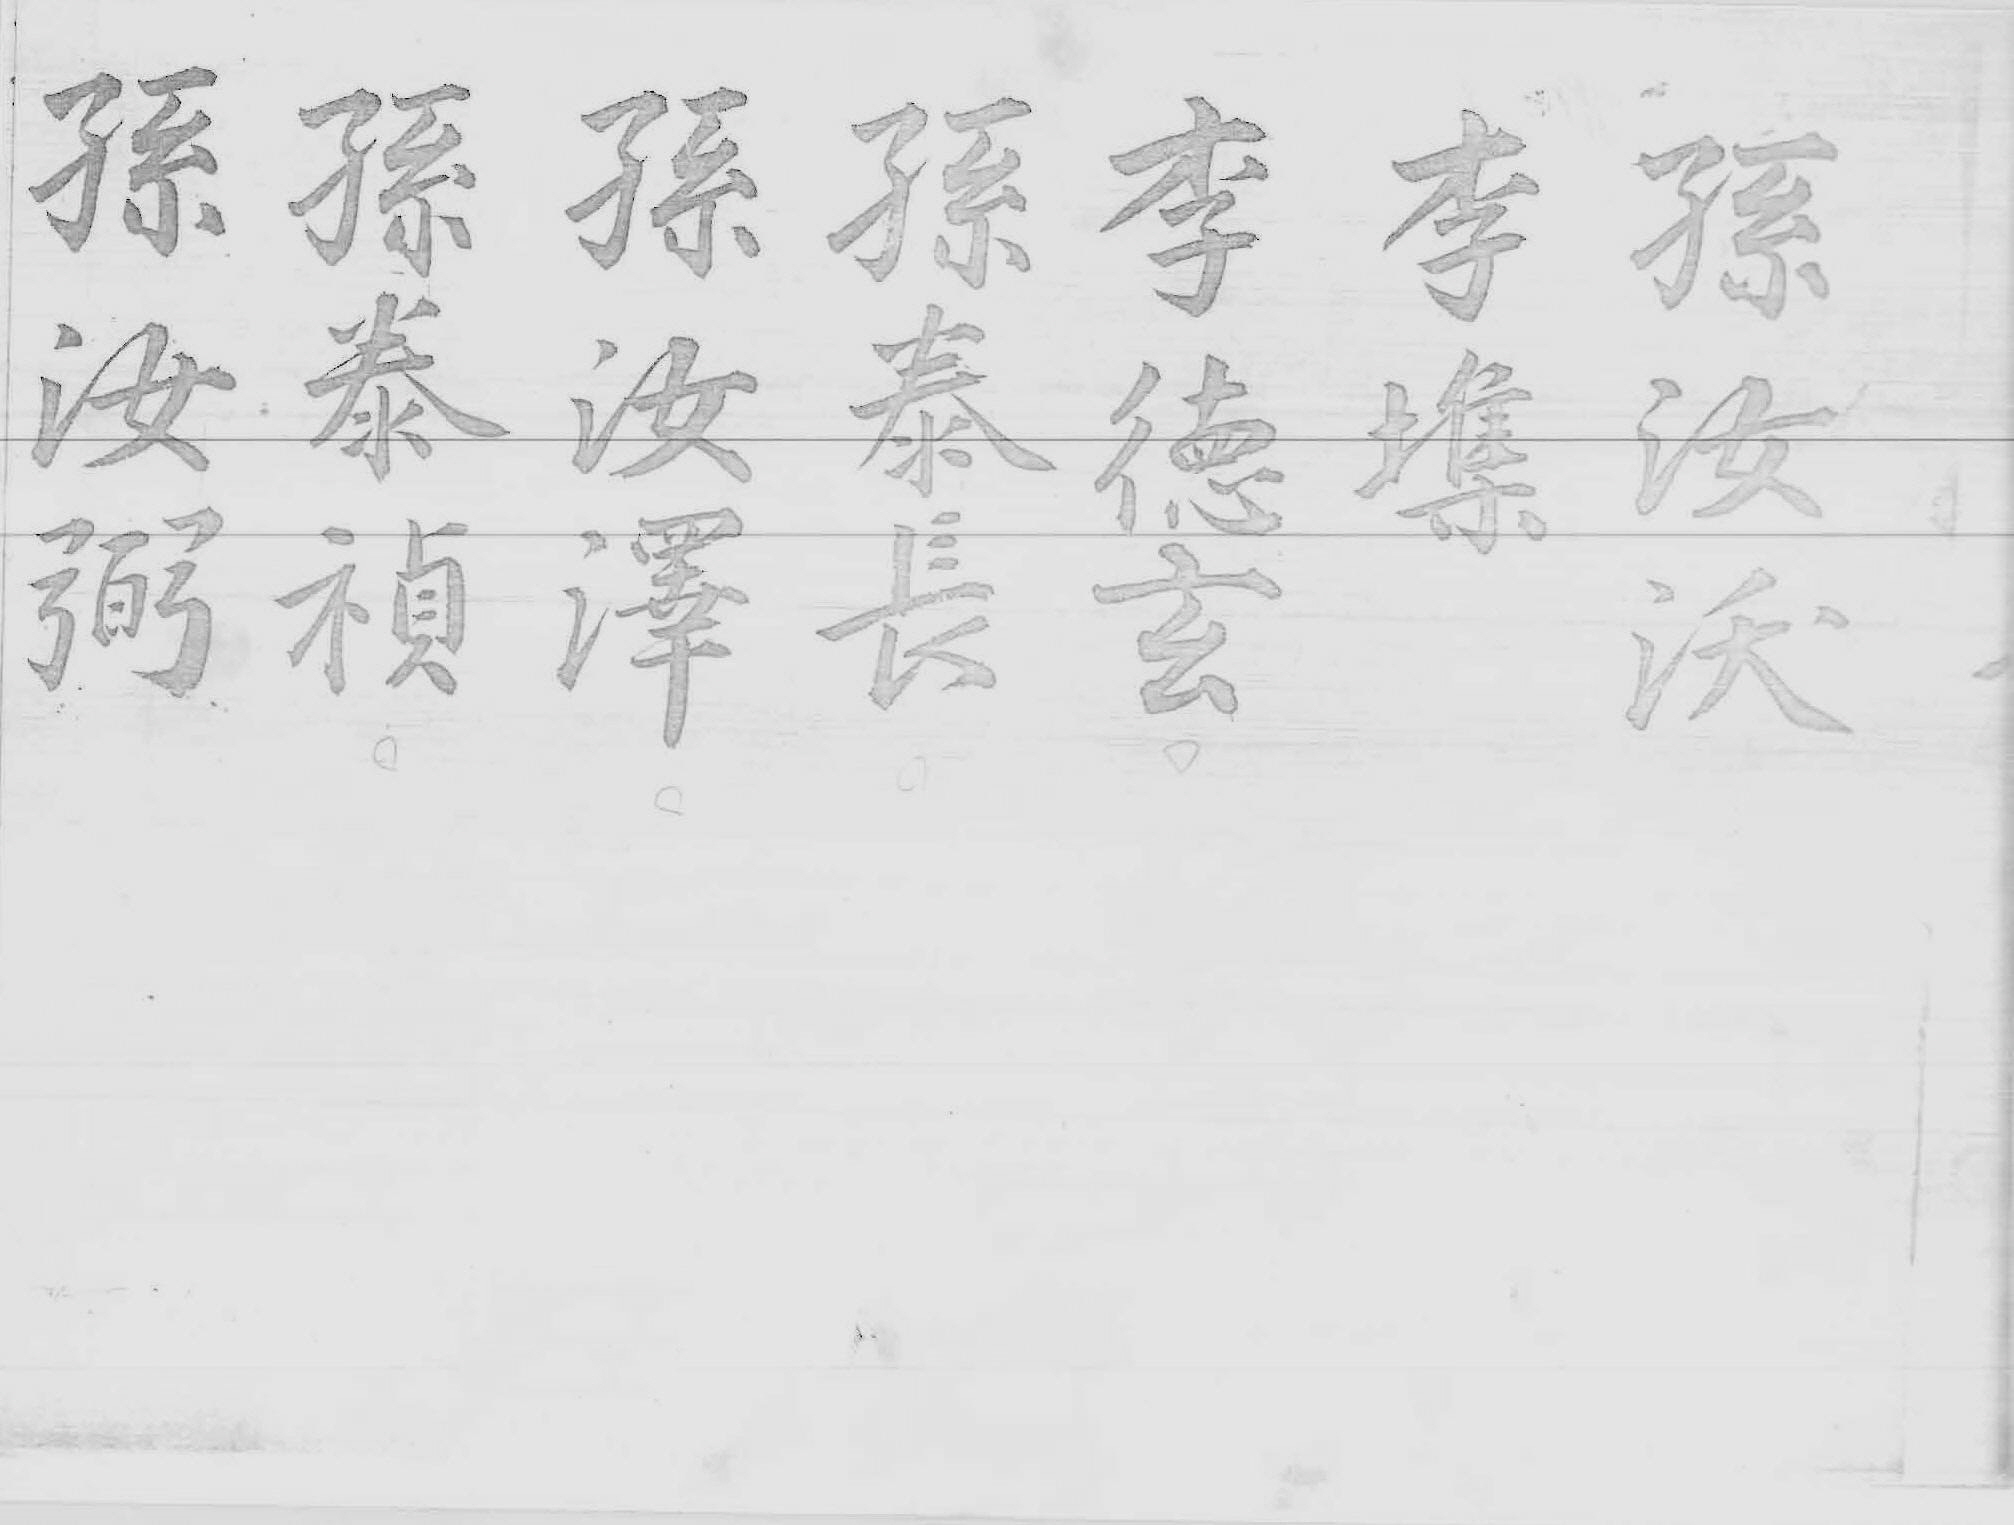 孫汝沃
李㙫
李德玄
孫泰長
孫汝澤
孫泰禎
孫汝弼